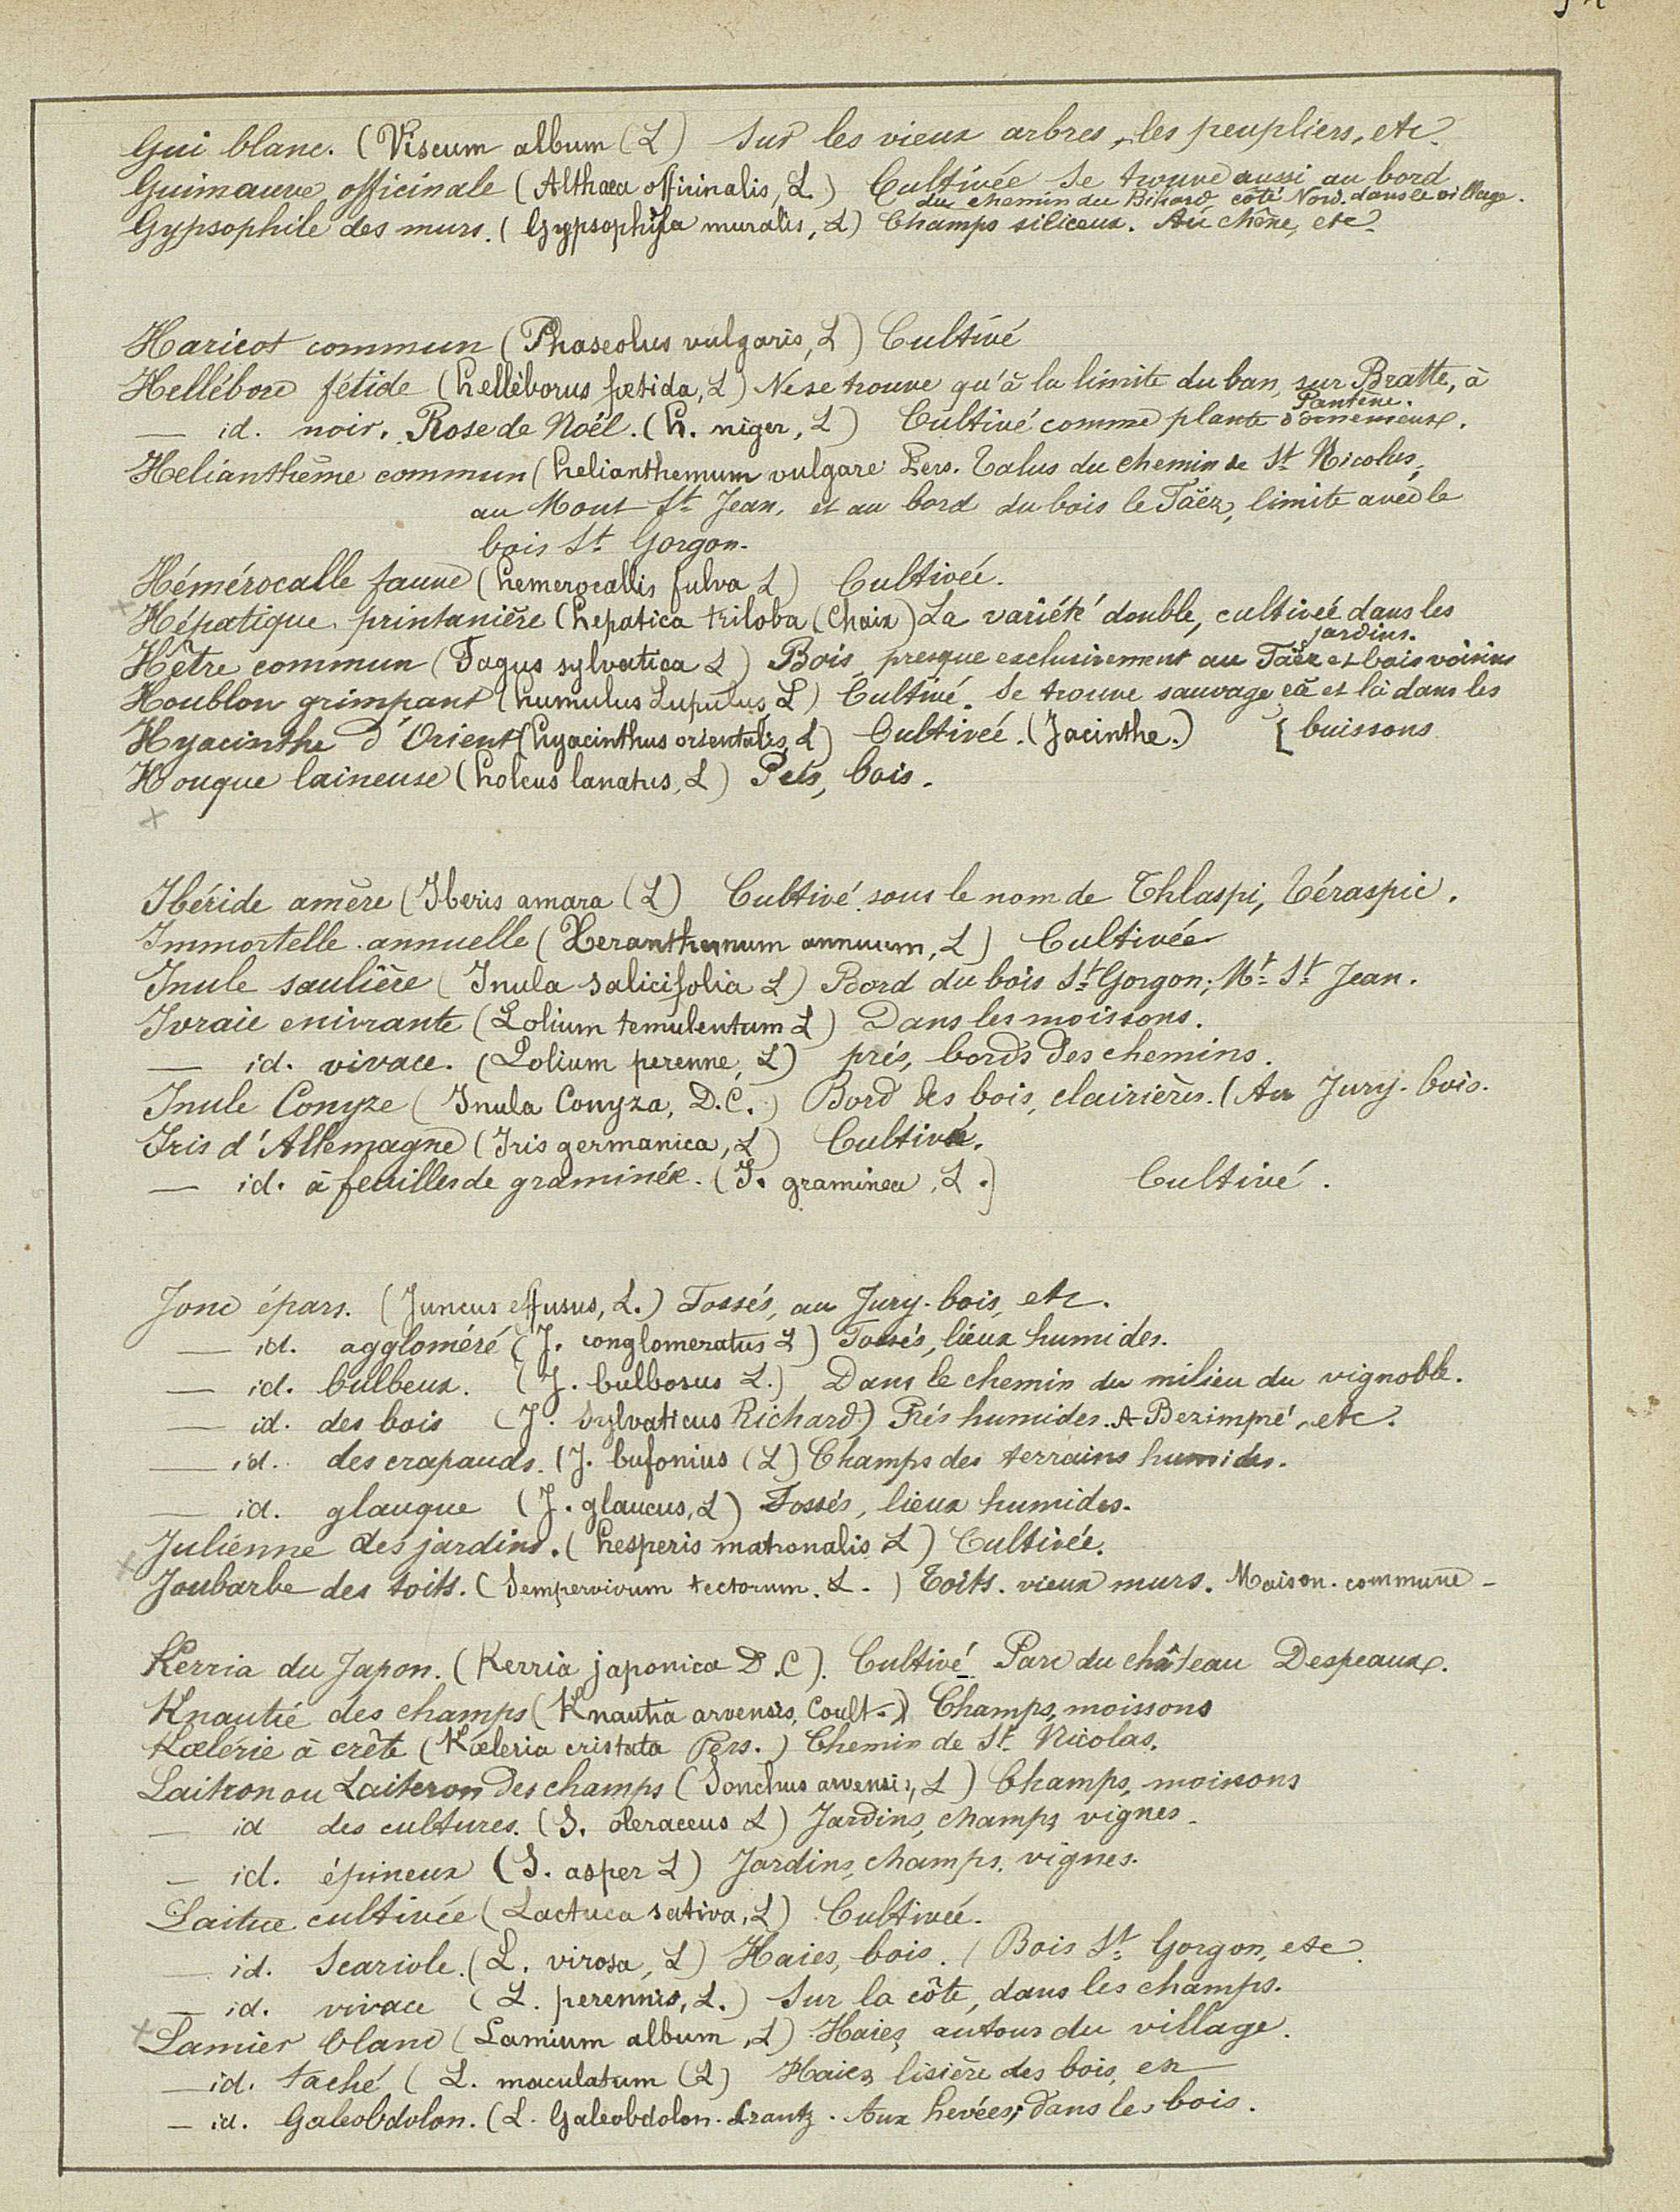 Gui blanc. (Viscum album (L) Sur les vieux arbres, les peupliers, etc.
Guimauve officinale (Althæa officinalis, L.) Cultivée Se trouve aussi au bord
du chemin du Bihard, côté Nord. dans le village.
Gypsophile des murs. (Gypsophyla muralis, L) Champs siliceux. Au chêne, etc.
Haricot commun (Phaseolus vulgaris, L) Cultivé
Hellébore fétide (helléborus fœtida, L) Ne se trouve qu'à la limite du ban, sur Bratte, à
Pantène.
— id. noir. Rose de Noël. (h. niger, L) Cultivé comme plante d'ornement.
Helianthème commun (helianthemum vulgare Pers. Talus du chemin de St Nicolas,
au Mont St Jean, et au bord du bois le Täëz, limite avec le
bois St Gorgon.
Hémérocalle fauve (hemerocallis fulva L) Cultivée.
Hépatique printanière (hepatica triloba (Chaix) La variété double, cultivée dans les
jardins.
Hêtre commun (Fagus sylvatica L) Bois, presque exclusivement au Täëz et bois voisins
Houblon grimpant (humulus Lupulus, L) Cultivé. Se trouve sauvage çà et là dans les
Hyacinthe d'Orient (hyacinthus orientalis, L) Cultivée. (Jacinthe.) [buissons
Houque laineuse (holcus lanatus, L) Prés, bois.
Ibéride amère (Iberis amara (L) Cultivé sous le nom de Thlaspi, Téraspic.
Immortelle annuelle (Xeranthemum annuum, L) Cultivée
Inule saulière (Inula salicifolia L) Bord du bois St Gorgon; Mt St Jean.
Ivraie enivrante (Lolium temulentum L) Dans les moissons.
— id. vivace. (Lolium perenne, L) prés, bords des chemins.
Inule Conyze (Inula Conyza, D.C.) Bord des bois, clairières. (Au Jury-bois.
Iris d'Allemagne (Iris germanica, L) Cultivé.
— id. à feuilles de graminée. (I. graminea, L.) Cultivé.
Jonc épars. (Juncus effusus, L.) Fossés, au Jury-bois, etc.
— id. aggloméré (J. conglomeratus L) Fossés, lieux humides.
— id. bulbeux. (J. bulbosus L.) Dans le chemin du milieu du vignoble.
— id. des bois (J. Sylvaticus Richard.) Prés humides. A Bezimpré, etc.
— id. des crapauds. (J. bufonius (L) Champs des terrains humides.
— id. glauque (J. glaucus, L) Fossés, lieux humides.
Julienne des jardins. (hesperis matronalis L) Cultivée.
Joubarbe des toits. (Sempervivum tectorum. L.) Toits. vieux murs. Maison commune -
Kerria du Japon. (Kerria japonica D.C). Cultivé Parc du château Despeaux.
Knautie des champs (Knautia arvensis, Coult.) Champs, moissons
Kœlérie à crête (Kœleria cristata Pers.) Chemin de St Nicolas.
Laitron ou Laiteron des champs (Sonchus arvensis, L) Champs, moissons
— id des cultures. (S. oleraceus L) Jardins, champs vignes.
— id. épineux (S. asper L) Jardins, champs, vignes.
Laitue cultivée (Lactuca sativa, L) Cultivée.
— id. Scariole. (L. virosa, L) Haies, bois. (Bois St Gorgon, etc.
— id. vivace (L. perennis, L.) Sur la côte, dans les champs.
Lamier blanc (Lamium album, L) Haies, autour du village.
— id. taché (L. maculatum (L) Haies, lisière des bois, etc
— id. Galeobdolon. (L. Galeobdolon. Crantz. Aux hevées; dans les bois.